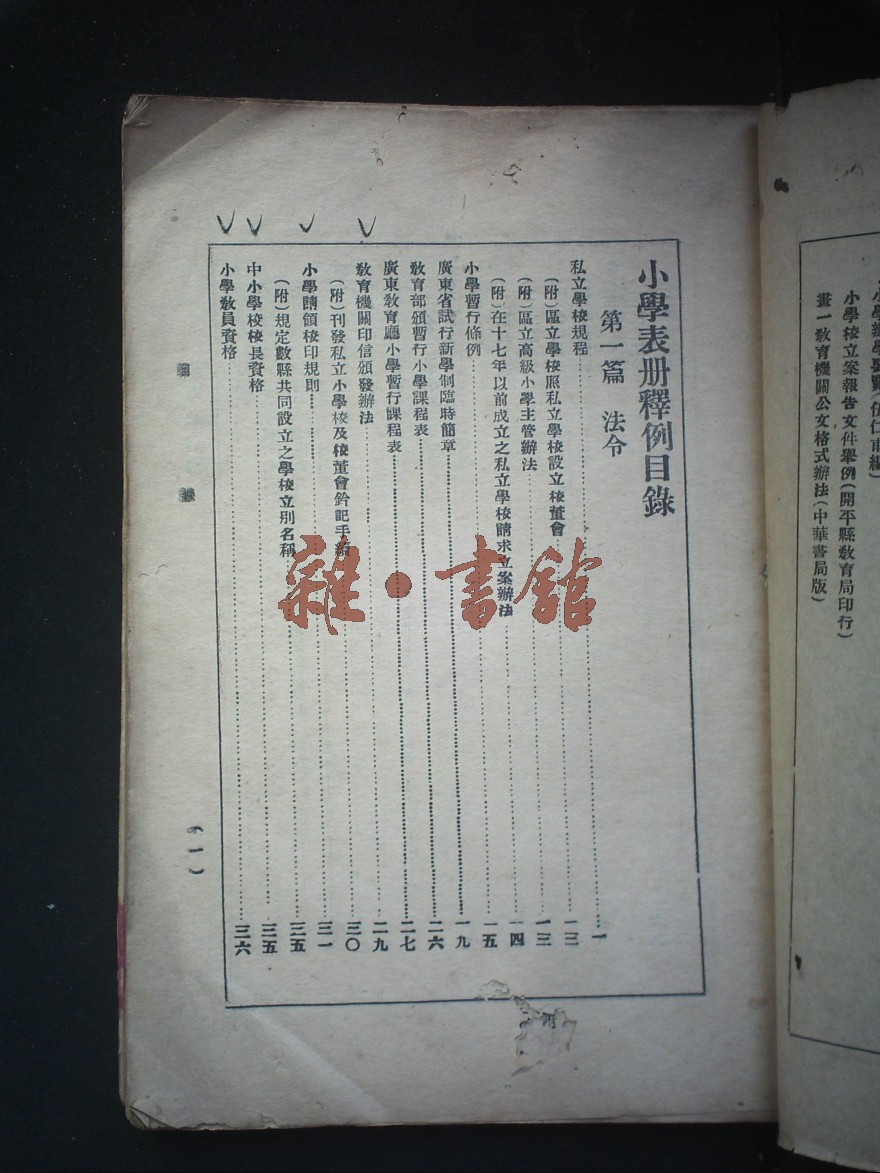 小學校立案報告文件舉例(開平縣教育局印行)
畫一教育機關公文格式辦法(中華書局版)
小學表册釋例目錄
第一篇 法令
私立學校規程……一
(附)區立學校照私立學校設立校董會……一三
(附)區立高級小學主管辦法……一三
(附)在十七年以前成立之私立學校請求立案辦法……一四
小學暫行條例……一五
廣東省試行新學制臨時簡章……一九
教育部頒暫行小學課程表……二六
廣東教育廳小學暫行課程表……二七
教育機關印信頒發辦法……二九
(附)刊發私立小學校及校董會鈐記手續……三〇
小學請領校印規則……三一
(附)規定數縣共同設立之學校立別名稱……三五
中小學校校長資格……三五
小學教員資格……三六
目 錄
(一)
附
雜·書館